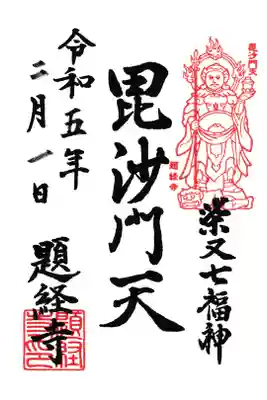 毘沙門天
題経寺
柴又七福神
毘沙門天
令和五年
二月一日
題経寺